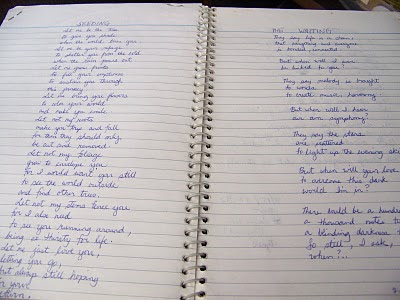 SEEDING
Let me be the tree
to give you shade
when the world tires you
Let me be your refuge
to shelter you from the cold
when the rain pours out
Let me your fruits
to fill your emptiness
to sustain you through
this journey
Let me bring you flowers
to color your world
and make you smile
Let not my roots
make you trip and fall
for then they should only
be cut and removed
Let not my foliage
grow to envelope you
for I would want you still
to see the world outside
and find other trees.
Let not my stems leave you
for I also need
to see you running around,
being so thirsty for life.
Let me just love you,
letting you go,
but always still hoping
your
return.
WAITING
They say life is a dream,
that everything and everyone
is linked, connected.
But when will I ever
be linked to you?
They say melody is brought
to winds
to create music, harmony
But when will I hear
our own symphony?
They say the stars
are scattered
to light up the evening sky
But when will your love
to overcome this dark
world I'm in?
There could be a hundred
a thousand notes in
a blinding darkness
So still, I ask,
when?...